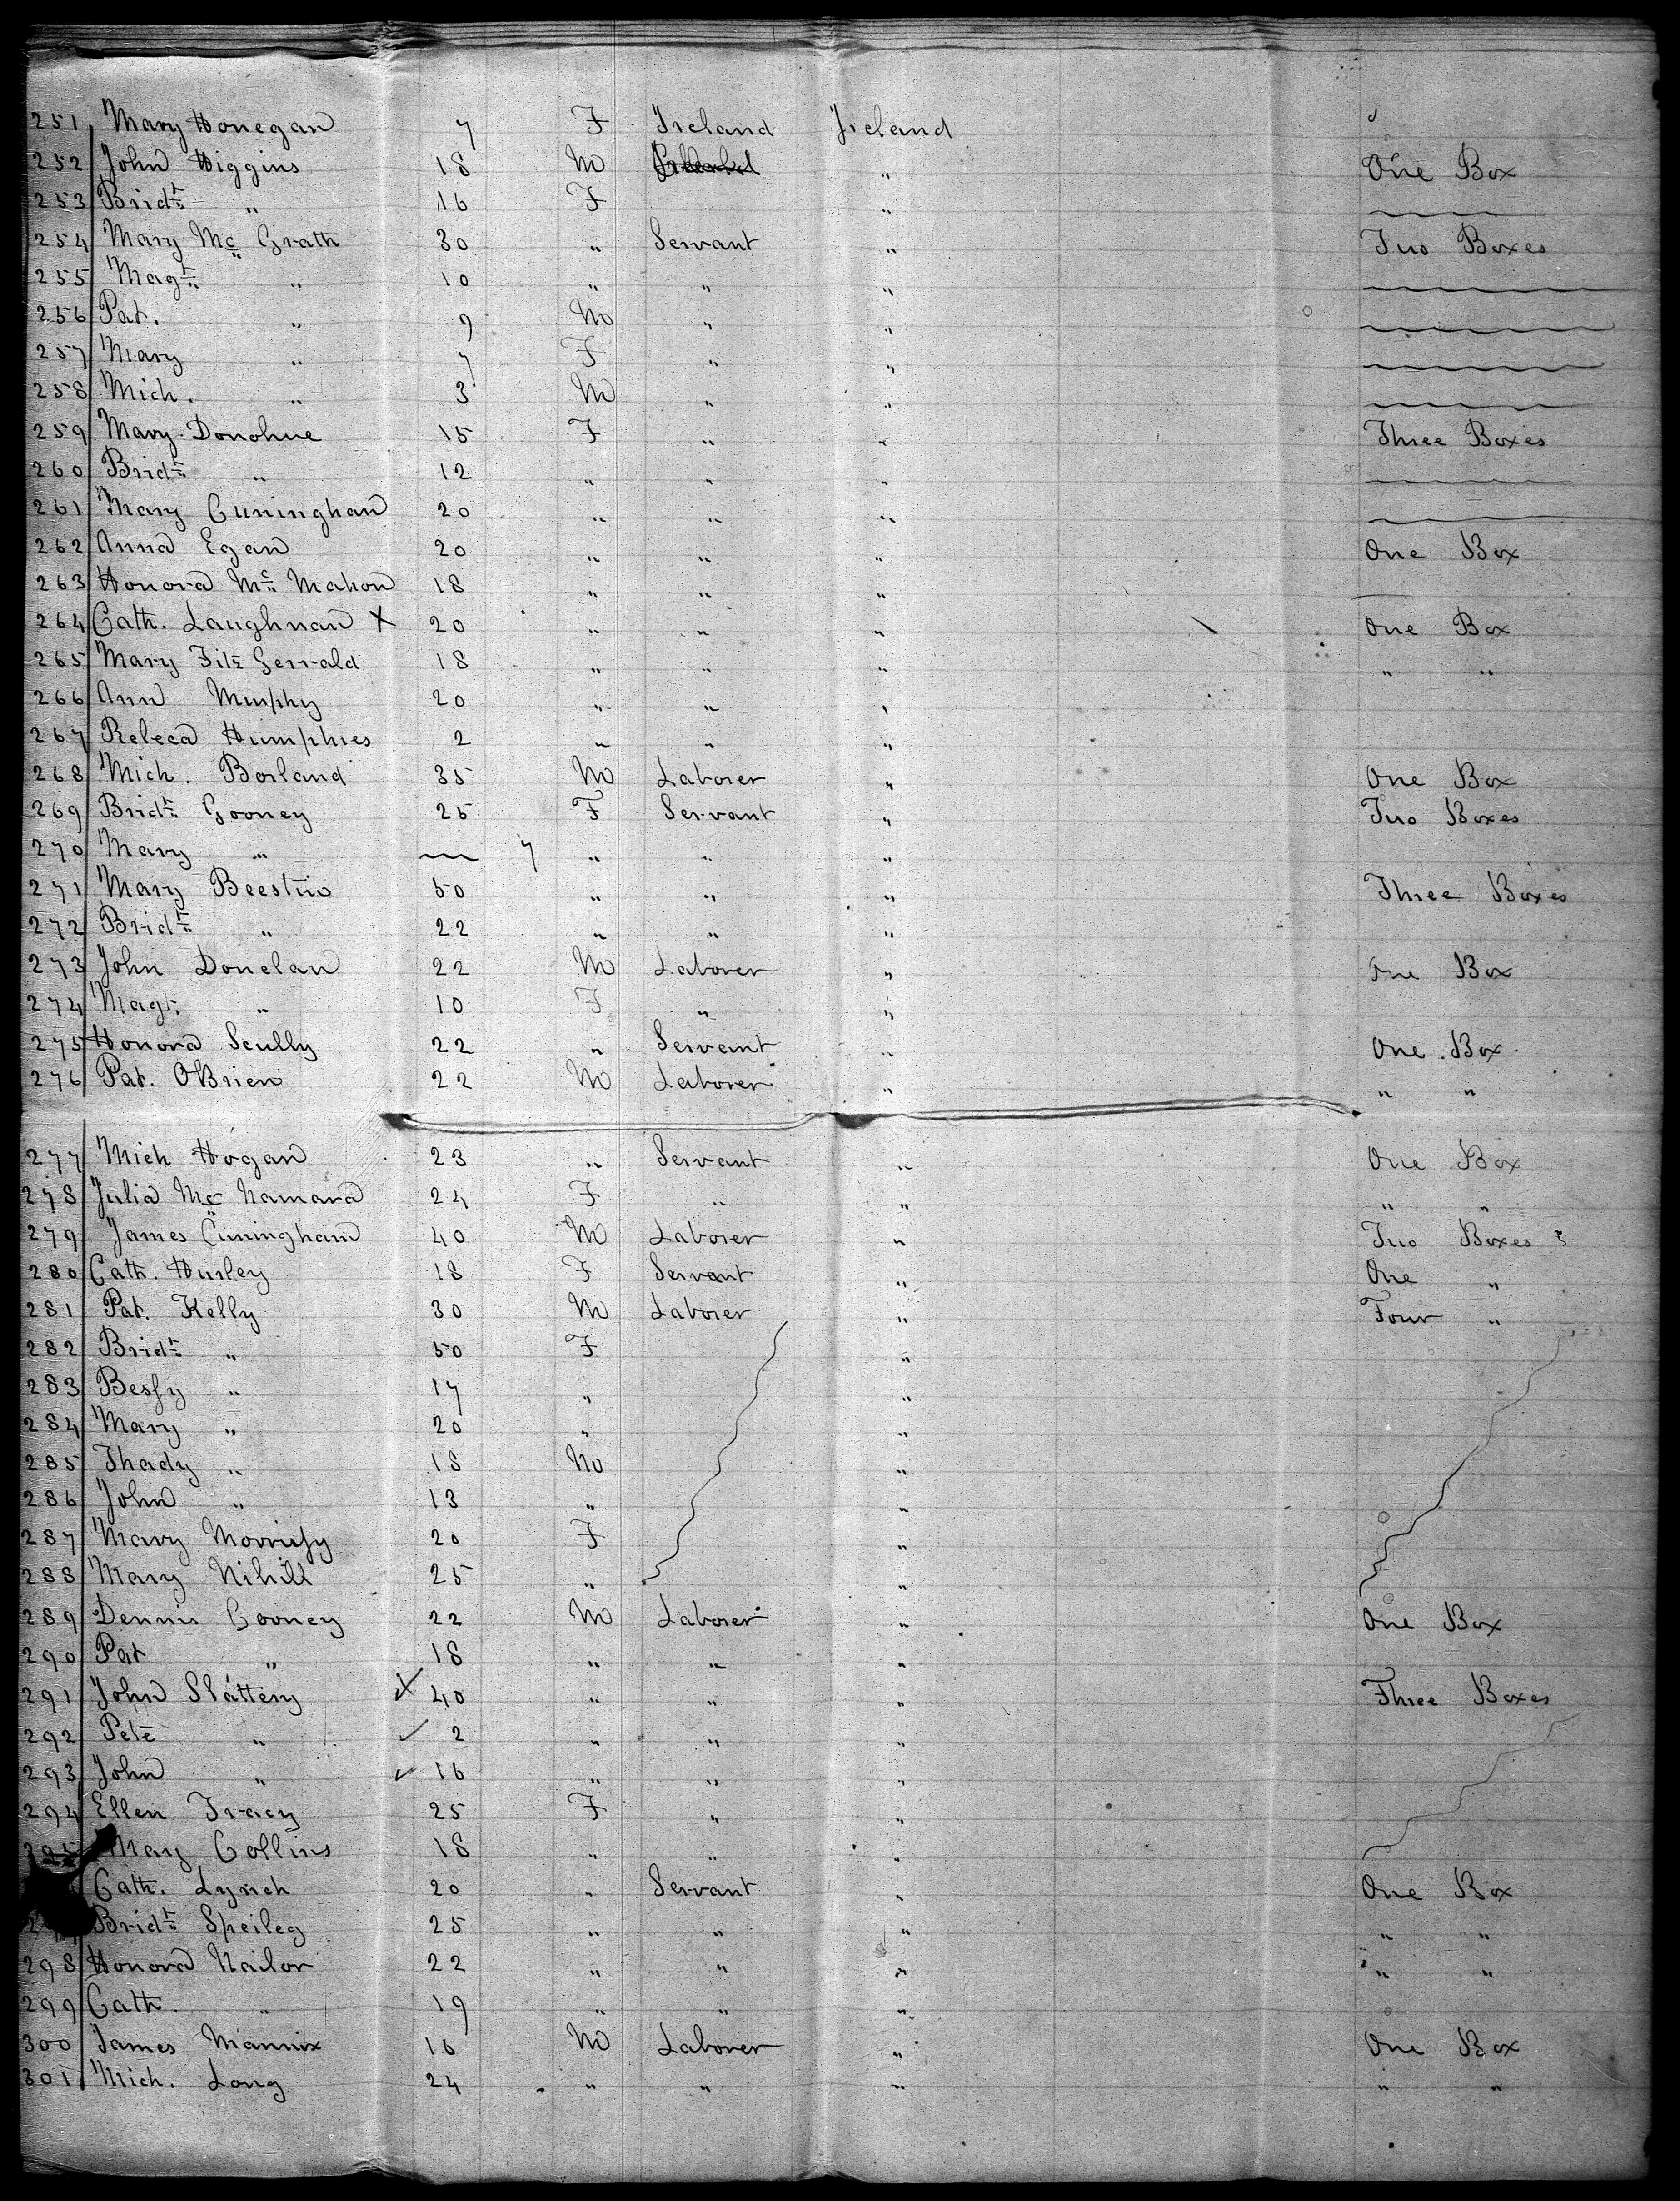 251 Mary Honegan 7 F Ireland Ireland
252 John Higgins 18 M " One Box
253 Bridt " 16 F "
254 Mary Mc Grath 30 " Servant " Two Boxes
255 Magt " 10 " " "
256 Pat. " 9 M " "
257 Mary " 7 F " "
258 Mich. " 3 M " "
259 Mary Donohue 15 F " " Three Boxes
260 Bridt " 12 " " "
261 Mary Cuninghan 20 " " "
262 Anna Egan 20 " " " One Box
263 Honora Mc Mahon 18 " " "
264 Cath. Laughnan X 20 " " " One Box
265 Mary Fitz Gerrald 18 " " " " "
266 Ann Murphy 20 " " "
267 Rebeca Humphies 2 " " "
268 Mich. Borland 35 M Laborer " One Box
269 Bridt Gooney 25 F Servant " Two Boxes
270 Mary " 7 " " "
271 Mary 50 " " " Three Boxes
272 Bridt " 22 " " "
273 John Donelan 22 M Laborer " One Box
274 Magt " 10 F " "
275 Honora Scully 22 " Servant " One Box
276 Pat. OBrien 22 M Laborer " " "
277 Mich Hogan 23 " Servant " One Box
278 Julia Mc Namara 24 F " " " "
279 James Cuningham 40 M Laborer " Two Boxes
280 Cath. Hurley 18 F Servant " One "
281 Pat. Kelly 30 M Laborer " Four "
282 Bridt " 50 F "
283 Bessy " 17 " "
284 Mary " 20 " "
285 Thady " 18 M "
286 John " 13 " "
287 Mary Morrissy 20 F "
288 Mary Nihill 25 " "
289 Dennis Cooney 22 M Laborer " One Box
290 Pat " 18 " " "
291 John Slattery X 40 " " " Three Boxes
292 Pete " ✓ 2 " " "
293 John " ✓ 16 " " "
294 Ellen Tracy 25 F " "
295 Mary Collins 18 " " "
Cath. Lynch 20 " Servant " One Box
Bridt Speileg 25 " " " " "
298 Honora Nailor 22 " " " " "
299 Cath. " 19 " " "
300 James Mannix 16 M Laborer " One Box
301 Mich. Long 24 " " " " "